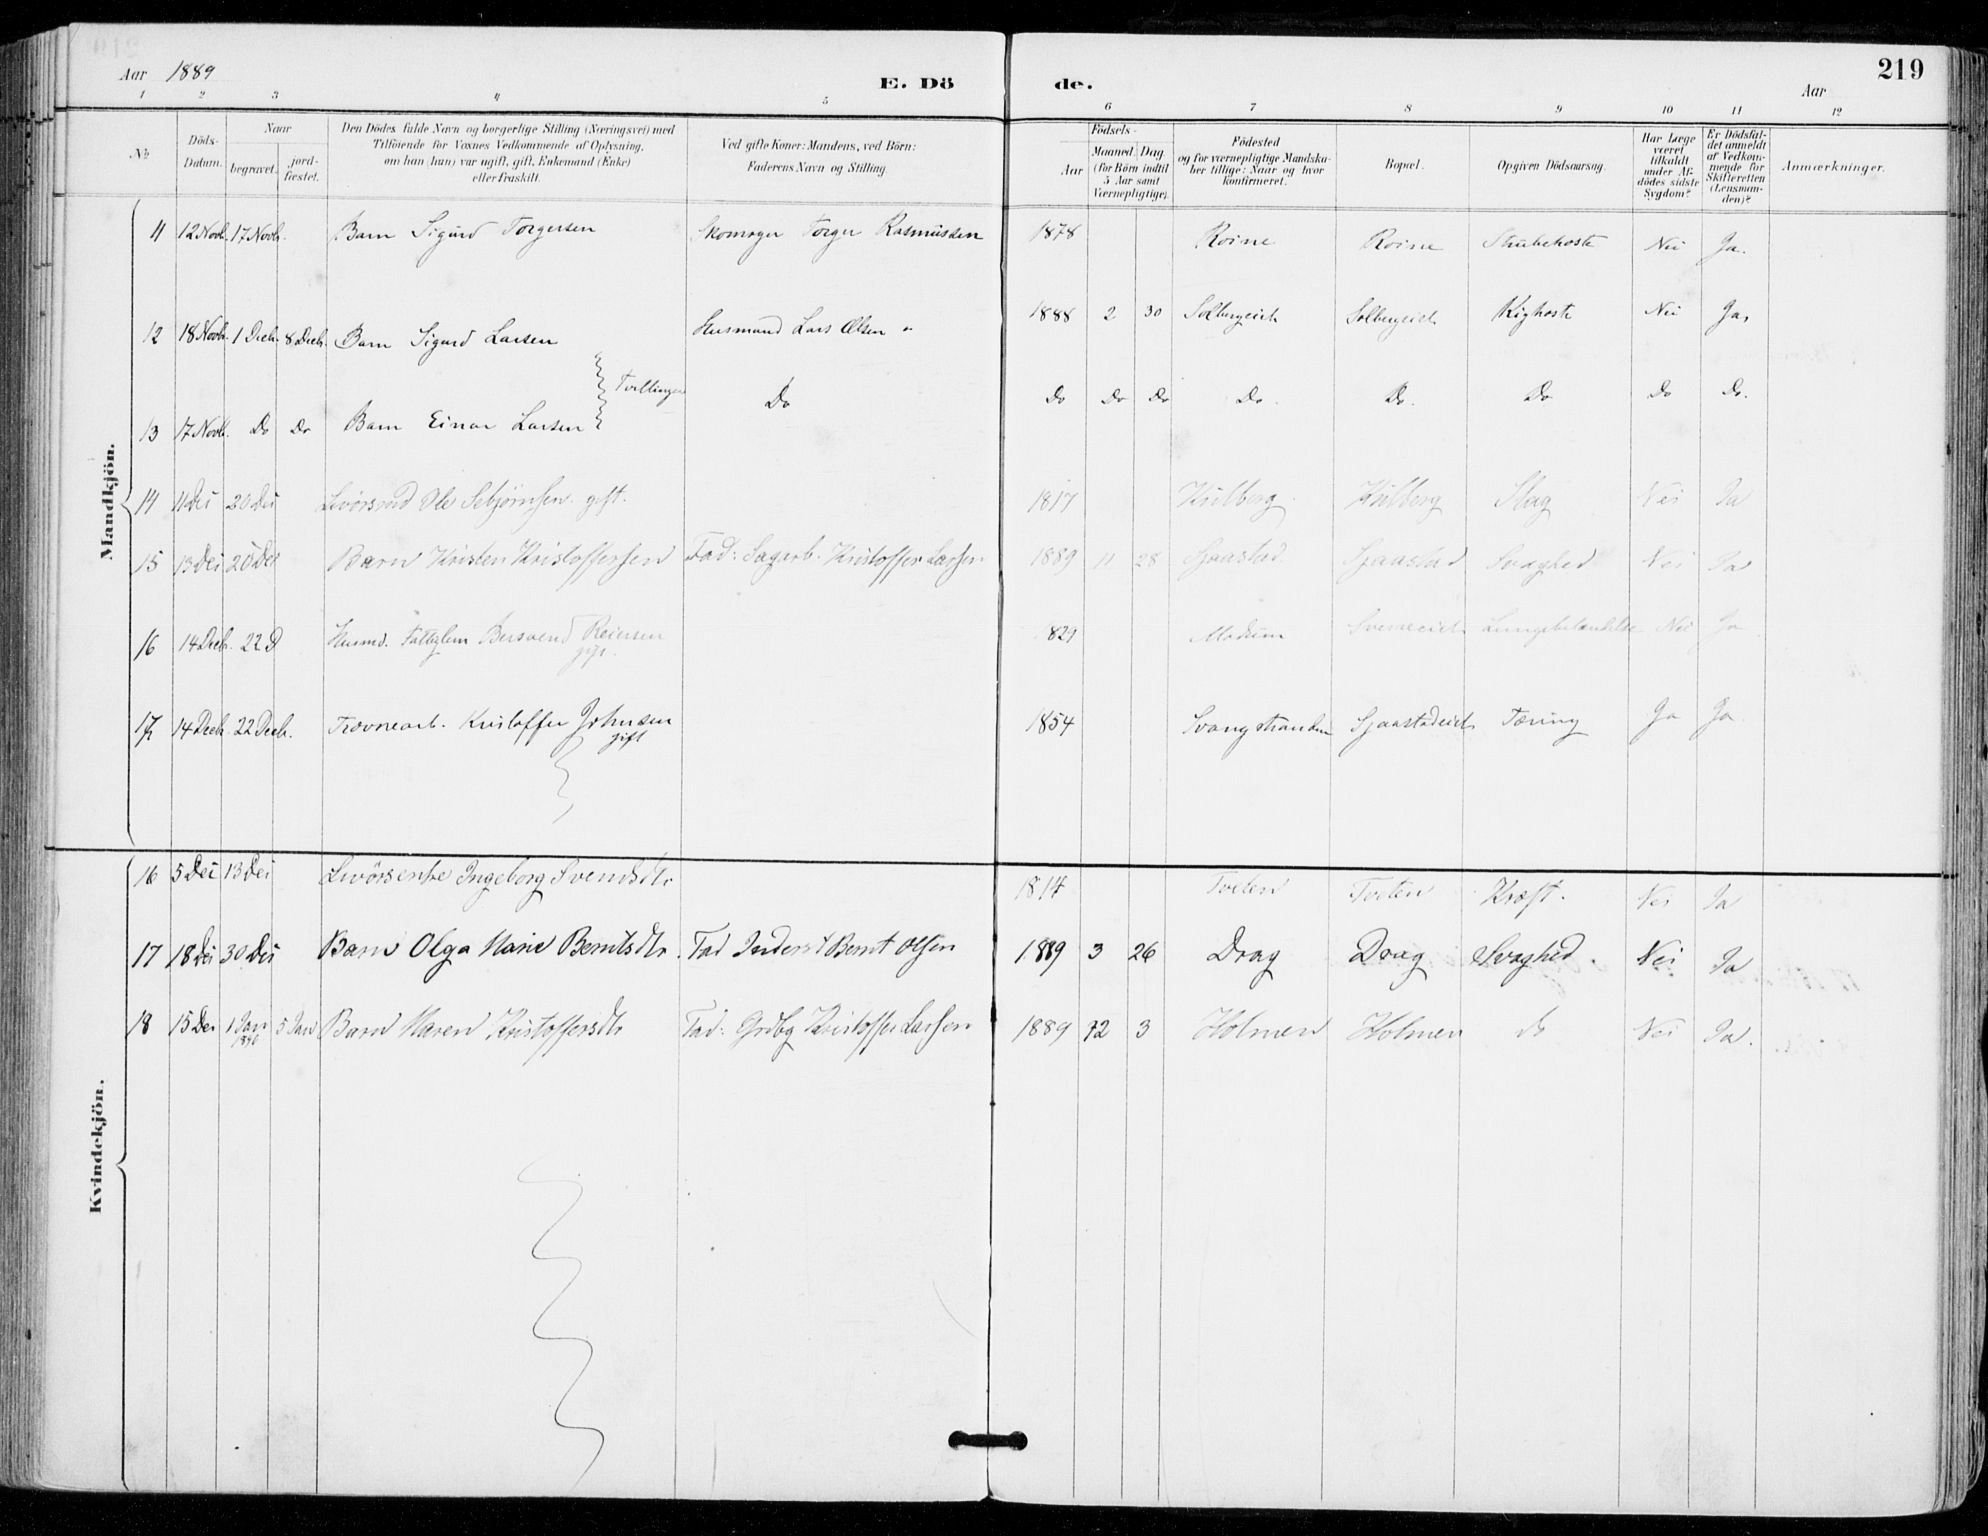 219
Aar 1889
E. Dö
de.
Aar
1 2 3 4 5 6 7 8 9 10 11 12
No
Döds-
Datum.
Naar
begravet.
jord-
fæstet.
Den Dödes fulde Navn og borgerlige Stilling (Næringsvei) med
Tilföiende for Voxnes Vedkommende af Oplysning,
om han (hun) var ugift, gift, Enkemand (Enke)
eller fraskilt.
Ved gifte Koner: Mandens, ved Börn:
Faderens Navn og Stilling.
Födsels-
Aar
Maaned. Dag.
(for Börn indtil
5 Aar samt
Værnepligtige).
Födested
og for værnepligtige Mandska-
ber tillige: Naar og hvor
konfirmeret.
Bopæl.
Opgiven Dödsaarsag.
Har Læge
været
tilkaldt
under Af-
dödes sidste
Sygdom?
Er Dödsfal-
det anmeldt
af Vedkom-
mende for
Skifteretten
(Lensman-
den)?
Anmærkninger.
Mandkjön.
11 12 Novb. 17 Novb. Barn Sigurd Torgersen Skomager Torger Rasmussen 1878 Roine Roine Strubehoste Nei Ja.
12 18 Novb. 1 Decb. 8 Decb. Barn Sigurd Larsen Husmand Lars Olsen 1888 2 30 Solbergeiet Solbergeiet Kighoste Nei Ja,
Tvillinger
13 17 Novb. Do Do Barn Einar Larsen Do Do Do Do Do. Do. Do Do Do.
14 11 Dei 20 Dei Ole Sebjörnsen gift. 1817 Slag Nei Ja
15 13 Dei 20 Dei Barn Kristen Kristoffersen Fad: Sagarb. Kristoffer Larsen 1889 11 28 Sjaastad Sjaastad Svaghed Nei Ja
16 14 Decb. 22 D Husmd. Reiersen
gift.
1829 Modum Lungebetændelse Nei Ja
17 14 Decb. 22 Decb. Kristoffer Johnsen
gift
1854 Svangstranden Sjaastadeiet Tæring Ja Ja
Kvindekjön.
16 5 Dei 13 Dei Ingeborg Svendsdtr 1814 Tveten Tveten Kræft. Nei Ja
17 18 Dei 30 Dei Barn Olga Marie Berntsdtr. Fad Inderst Bernt Olsen 1889 3 26 Drag Drag Svaghed. Nei Ja
18 15 Dei 1 Jan 5 Jan Barn Maren Kristoffersdtr Fad: Grdbg Kristoffer Larsen 1889 12 3 Holmen Holmen do Nei Ja.
1890